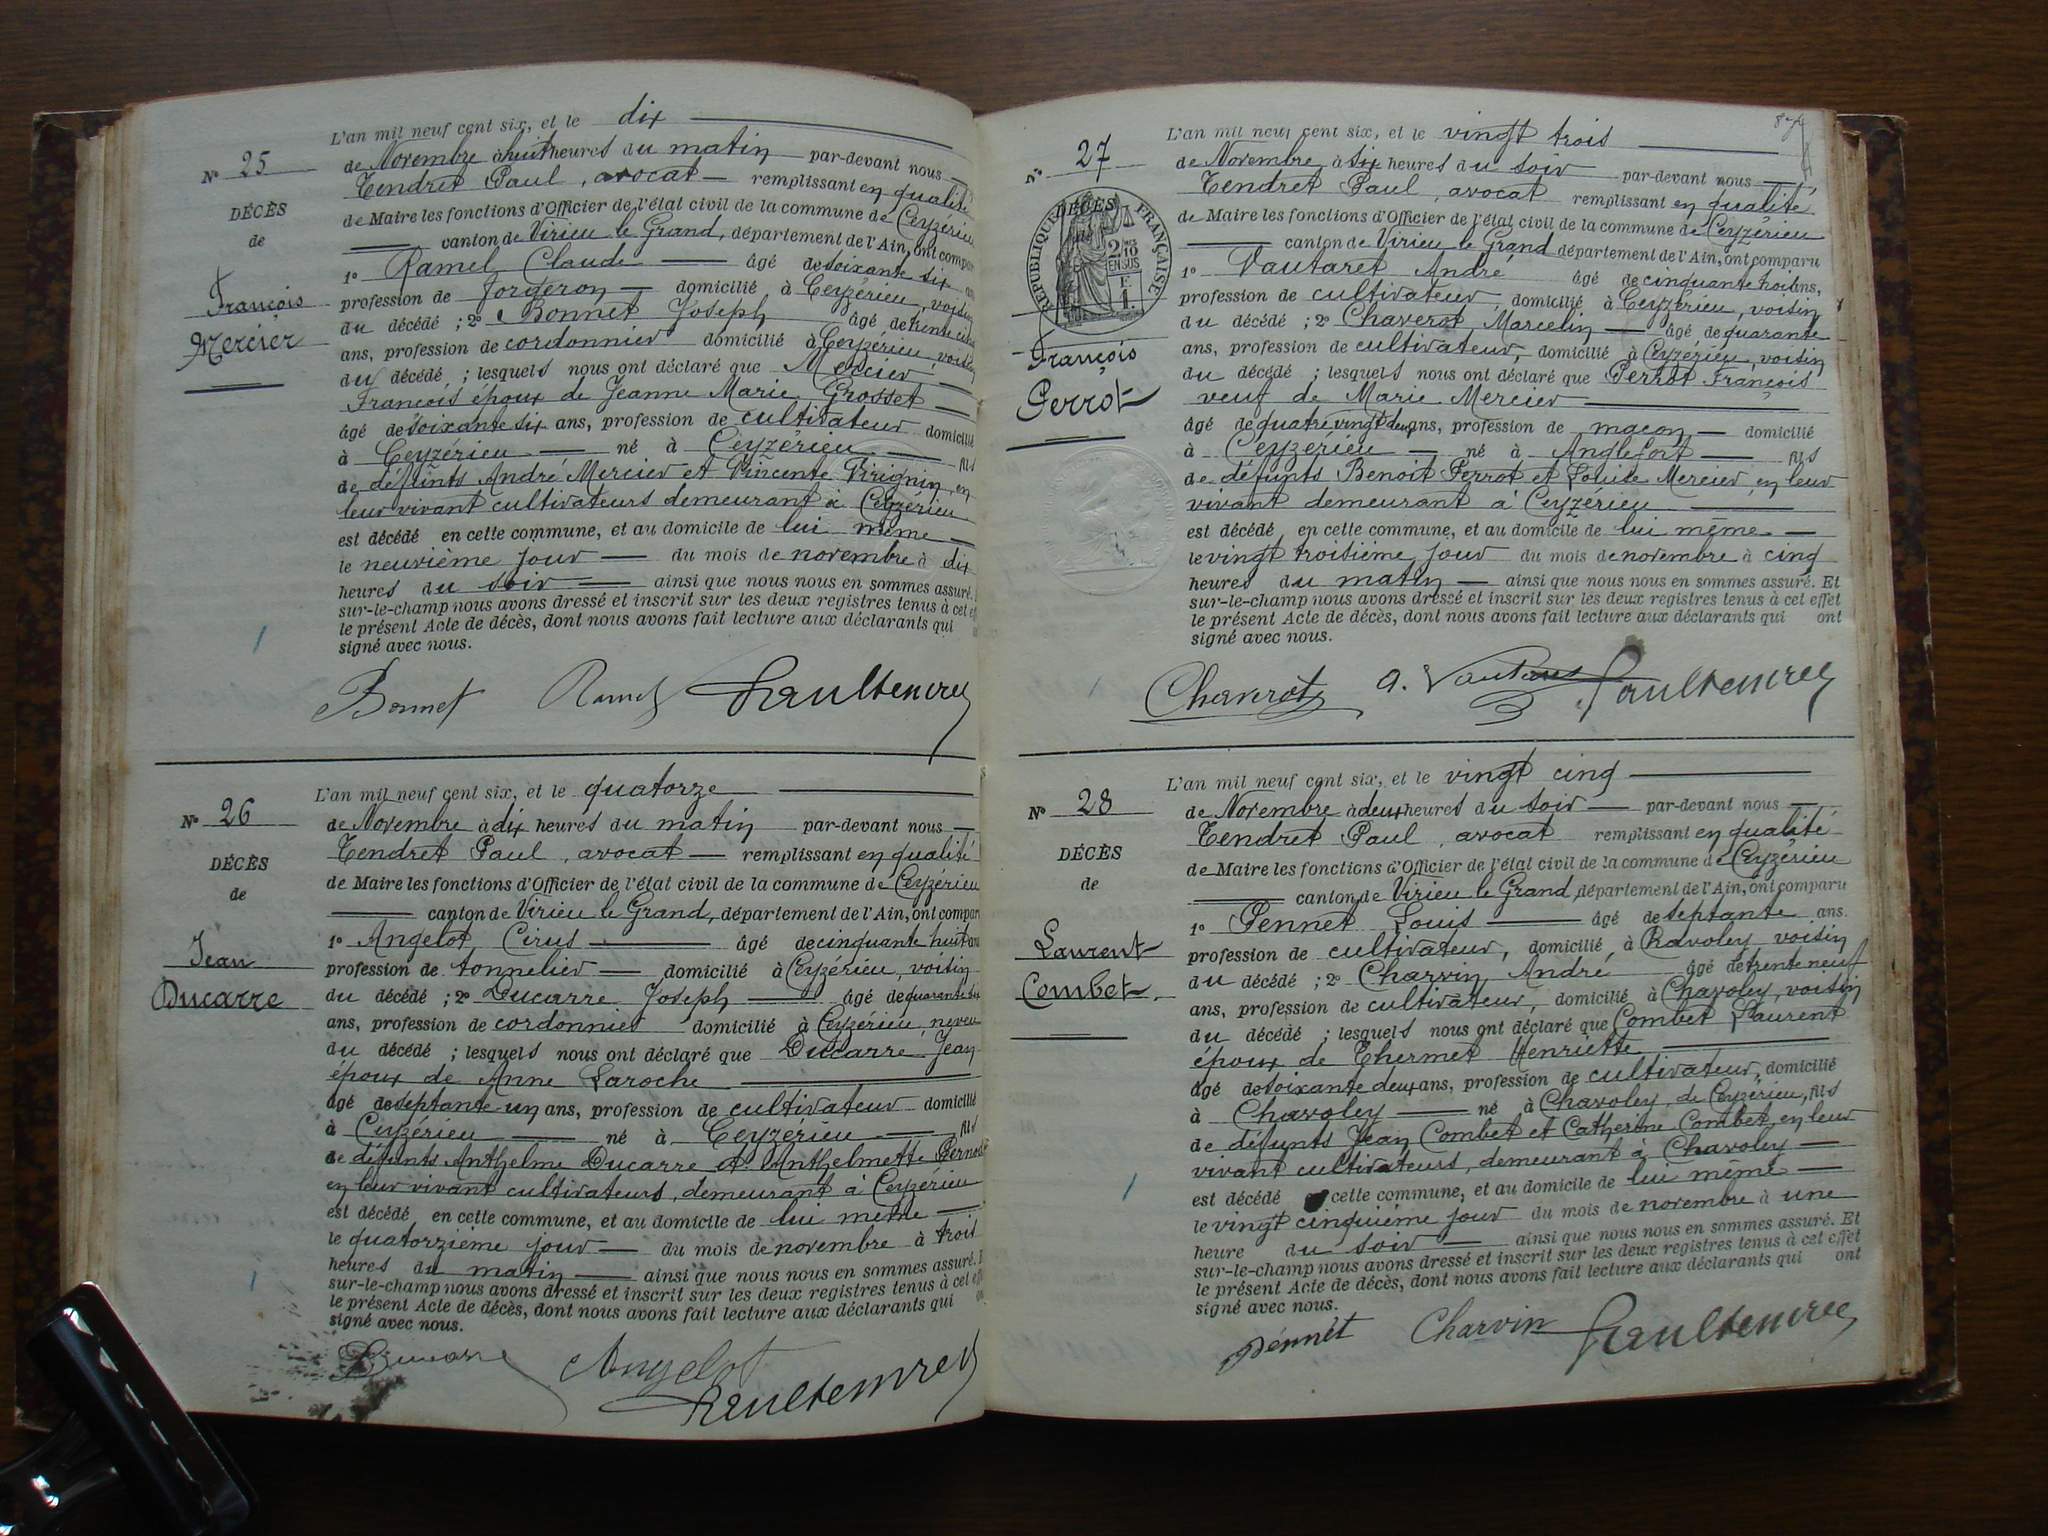 N° 25
DÉCÈS
de
François
Mercier
L'an mil neuf cent six, et le dix
de Novembre à huit heures du matin par-devant nous
Tendret Paul, avocat remplissant en qualité
de Maire les fonctions d'Officier de l'état civil de la commune de Ceyzérieu
canton de Virieu le Grand, département de l'Ain, ont compar
1° Ramel Claude âgé de soixante six
profession de forgeron domicilié à Ceyzérieu, voisin
du décédé ; 2° Bonnet Joseph âgé de trente
ans, profession de cordonnier domicilié à Ceyzérieu voisin
du décédé ; lesquels nous ont déclaré que Mercier
François époux de Jeanne Marie Grosset
âgé de soixante six ans, profession de cultivateur domicilié
à Ceyzérieu né à Ceyzérieu fils
de défunts André Mercier et Vincente Virignin en
leur vivant cultivateurs demeurant à Ceyzérieu
est décédé en cette commune, et au domicile de lui même
le neuvième jour du mois de novembre à dix
heures du soir ainsi que nous nous en sommes assuré.
sur-le-champ nous avons dressé et inscrit sur les deux registres tenus à cet
le présent Acte de décès, dont nous avons fait lecture aux déclarants qui
signé avec nous.
Bonnet Ramel
N° 26
DÉCÈS
de
Jean
Ducarre
L'an mil neuf cent six, et le quatorze
de Novembre à dix heures du matin par-devant nous
Tendret Paul, avocat remplissant en qualité
de Maire les fonctions d'Officier de l'état civil de la commune de Ceyzérieu
canton de Virieu le Grand, département de l'Ain, ont compar
1° Angelot Cirus âgé de cinquante huit ans
profession de tonnelier domicilié à Ceyzérieu, voisin
du décédé ; 2° Ducarre Joseph âgé de quarante
ans, profession de cordonnier domicilié à Ceyzérieu, neveu
du décédé ; lesquels nous ont déclaré que Ducarre Jean
époux de Anne Laroche
âgé de septante un ans, profession de cultivateur domicilié
à Ceyzérieu né à Ceyzérieu fils
de défunts Anthelme Ducarre et Anthelmette
en leur vivant cultivateurs, demeurant à Ceyzérieu
est décédé en cette commune, et au domicile de lui même
le quatorzième jour du mois de novembre à trois
heures du matin ainsi que nous nous en sommes assuré.
sur-le-champ nous avons dressé et inscrit sur les deux registres tenus à cet
le présent Acte de décès, dont nous avons fait lecture aux déclarants qui
signé avec nous.
Ducarre Angelot
87
N° 27
DÉCÈS
RÉPUBLIQUE FRANÇAISE
2/10
EN SUS
F.
1.
François
Perrot
L'an mil neuf cent six, et le vingt trois
de Novembre à six heures du soir par-devant nous
Tendret Paul, avocat remplissant en qualité
de Maire les fonctions d'Officier de l'état civil de la commune de Ceyzérieu
canton de Virieu le Grand département de l'Ain, ont comparu
1° Vautaret André âgé de cinquante trois ans,
profession de cultivateur, domicilié à Ceyzérieu, voisin
du décédé ; 2° Chaverot, Marcelin âgé de quarante
ans, profession de cultivateur, domicilié à Ceyzérieu, voisin
du décédé ; lesquels nous ont déclaré que Perrot François
veuf de Marie Mercier
âgé de quatre vingt deux ans, profession de maçon domicilié
à Ceyzérieu né à Anglefort fils
de défunts Benoit Perrot et Louise Mercier, en leur
vivant demeurant à Ceyzérieu
est décédé en cette commune, et au domicile de lui même
le vingt troisième jour du mois de novembre à cinq
heures du matin ainsi que nous nous en sommes assuré. Et
sur-le-champ nous avons dressé et inscrit sur les deux registres tenus à cet effet
le présent Acte de décès, dont nous avons fait lecture aux déclarants qui ont
signé avec nous.
Chaverot A. Vautaret
N° 28
DÉCÈS
de
Laurent
Combet
L'an mil neuf cent six, et le vingt cinq
de Novembre à deux heures du soir par-devant nous
Tendret Paul, avocat remplissant en qualité
de Maire les fonctions d'Officier de l'état civil de la commune de Ceyzérieu
canton de Virieu le Grand, département de l'Ain, ont comparu
1° Pennet Louis âgé de septante ans.
profession de cultivateur, domicilié à voisin
du décédé ; 2° Charvin André âgé de trente neuf
ans, profession de cultivateur, domicilié à Chavoley, voisin
du décédé ; lesquels nous ont déclaré que Combet Laurent
époux de Thermet Henriette
âgé de soixante deux ans, profession de cultivateur, domicilié
à Chavoley né à Chavoley, de Ceyzérieu, fils
de défunts Jean Combet et Catherine Combet, en leur
vivant cultivateurs, demeurant à Chavoley
est décédé cette commune, et au domicile de lui même
le vingt cinquième jour du mois de novembre à une
heure du soir ainsi que nous nous en sommes assuré. Et
sur-le-champ nous avons dressé et inscrit sur les deux registres tenus à cet effet
le présent Acte de décès, dont nous avons fait lecture aux déclarants qui ont
signé avec nous.
Pennet Charvin